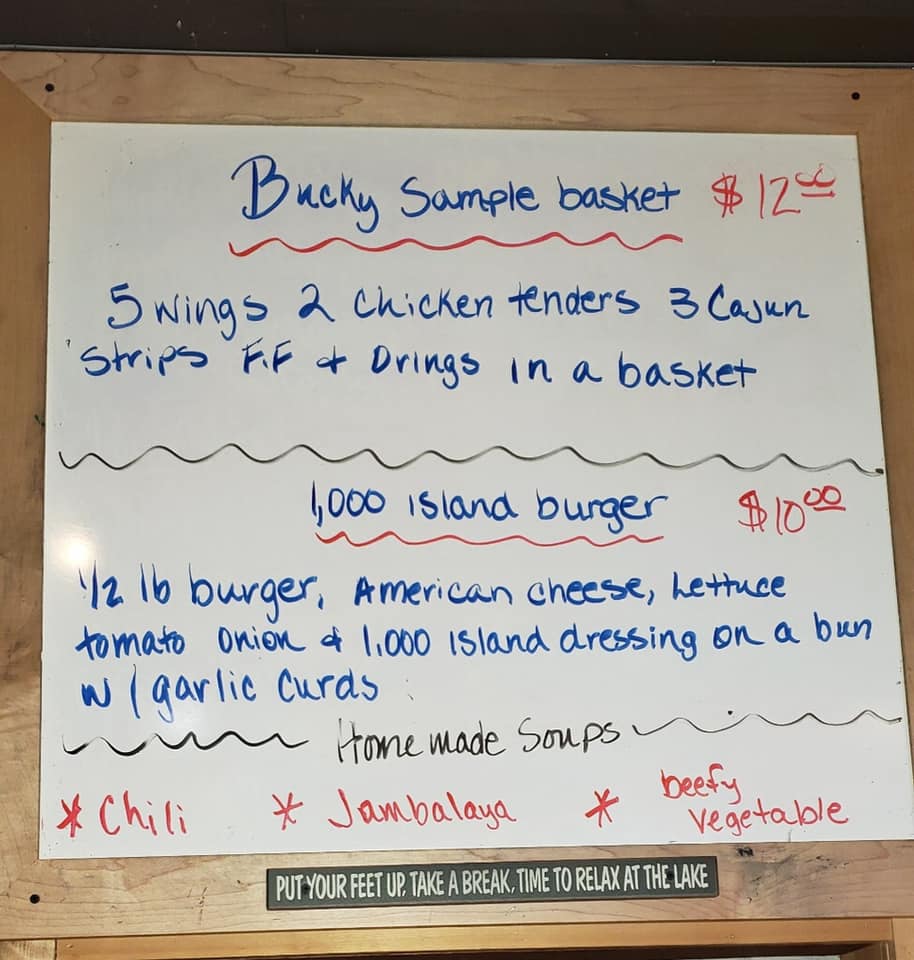 Bucky Sample basket $12.00
5 wings 2 Chicken tenders 3 Cajun
Strips F.F & Orings in a basket
1,000 island burger $10.00
1/2 lb burger, American cheese, Lettuce
tomato onion & 1,000 island dressing on a bun
w/ garlic curds
Homemade Soups
* Chili * Jambalaya * beefy
Vegetable
PUT YOUR FEET UP, TAKE A BREAK, TIME TO RELAX AT THE LAKE